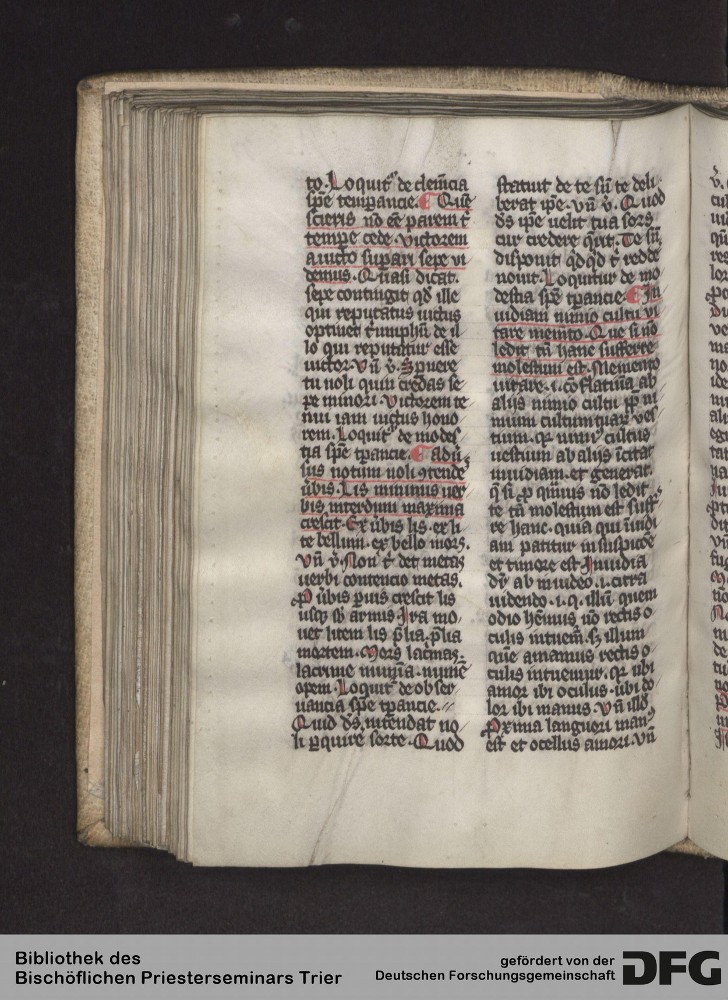 to. Loquit᷑ de clemēcia
spē temꝑancie. Quē
scieris nō eē parem t᷑
tempe cede. victorem
a victo supari sepe vi
demus. Quasi dicat.
sepe contingit qd ille
qui reputatus victus
optinet triumphū de il
lo qui reputatur esse
victor. Vn̄ v̄. Spuere
tu noli quin credas se
pe minori. Victorem te
nui iam victus hono
rem. Loquit᷑ de modes
tia spē tꝑancie. Adū
sus notum noli ꝯtende
v̄bis. Lis minimis ver
bis interdum maxima
crescit. Ex v̄bis lis. ex li
te bellum. ex bello mors.
Vn̄ v̄. Non t᷑ det metas
verbi contencio metas.
P v̄bis ꝑuis crescit lis
usqꝫ sb armis. Ira mo
uet litem lis p̄lia. p̄lia
mortem. Mors lacimas.
lacrime
opem. Loquit᷑ de obser
uancia spē tꝑancie.
Quid ds̄. intendat no
li ꝑquire sorte. Quod
statuit de te sn̄ te deli
berat ipe. vn̄ v̄. Quod
ds̄ ipe uelit tua sors
cur credere q̄rit. Te sn̄
disponit qdqd t᷑ redde
nouit. Loquitur de mo
destia spē tꝑancie. In
uidiam nimio cultu vi
tare memto. Que si nō
ledit tn̄ hanc sufferre
molestum est. Memento
uitare .i. ab
alijs nimio cultu ꝓpt ni
mium cultum tuar ves
tium. qꝛ nimiꝰ cultus
uestium ab alijs īcitat
inuidiam. et generat.
q̄ si ꝓ qmuis nō ledit
te tn̄ molestum est suff
re hanc. quia qui īuidi
am patitur in suspicōe
et timore est Inuidia
dr̄ ab inuideo .i. citra
uidendo .i. q. illū quem
odio hēmus nō rectis o
culis intuem̄. sꝫ illum
quē amamus rectis o
culis intuemur. qꝛ ubi
amor ibi oculus. ubi do
lor ibi manus. Vn̄ illd
Proxima languori manꝰ
est et ocellus amori. Vn̄
Bibliothek des
Bischöflichen Priesterseminars Trier
gefördert von der
Deutschen Forschungsgemeinschaft
DFG